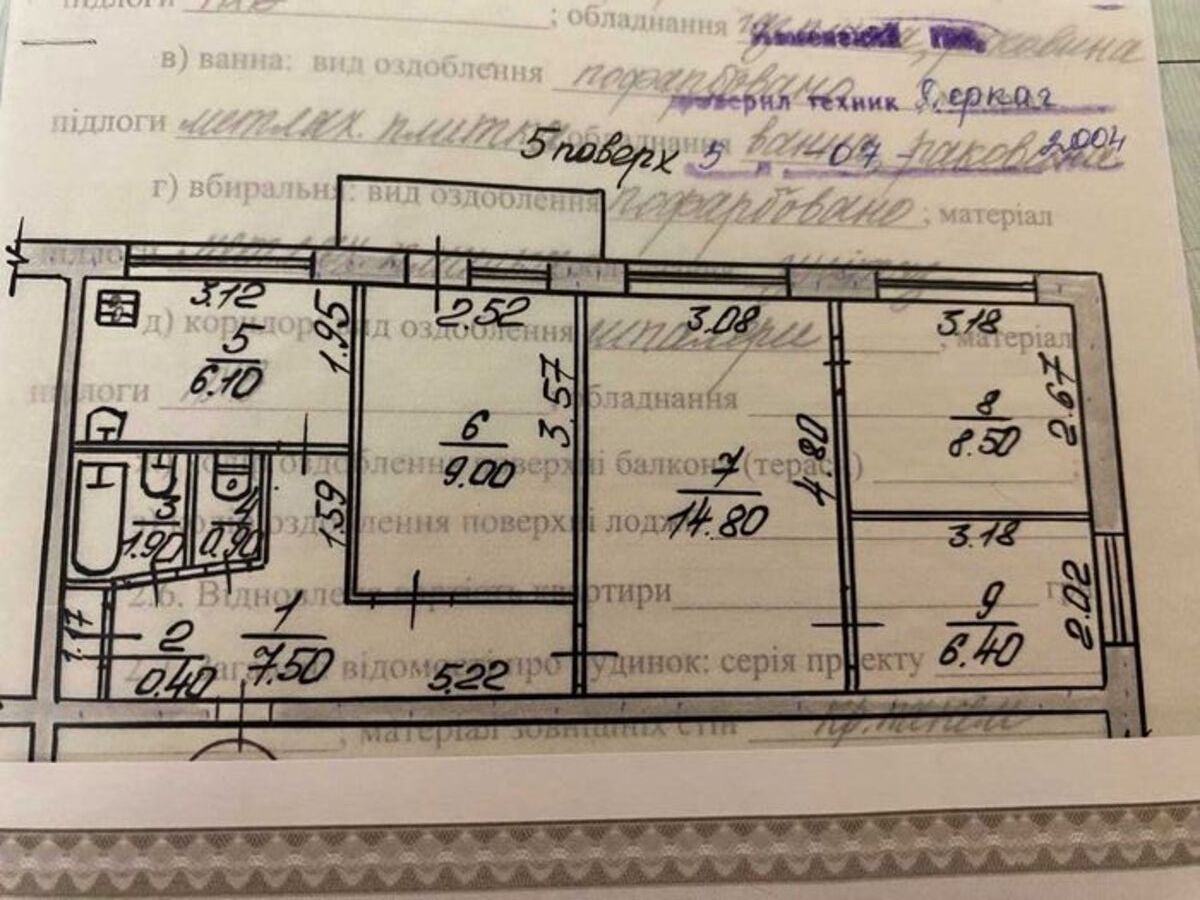 підлоги ; обладнання раковина
в) ванна: вид оздоблення пофарбовано
проверил техник
підлоги метлах. плитка обладнання ванна, раковина
5 поверх 5 07 2004
г) вбиральня: вид оздоблення пофарбовано ; матеріал
підлоги
3.12 1.95 2.52 3.08 3.18
д) коридор: вид оздоблення шпалери , матеріал
5
6.10
підлоги обладнання
3.57 2.67
6
9.00
8
8.50
4.80
оздоблення поверхні балкону (тераси)
7
14.80
3
1.90
4
0.90
1.59
оздоблення поверхні лоджії
3.18
2.6. Відновлена вартість квартири
1.17
2
0.40
1
7.50
9
6.40
2.02
відомості про будинок: серія проекту
5.22
, матеріал зовнішніх стін кр. панелі